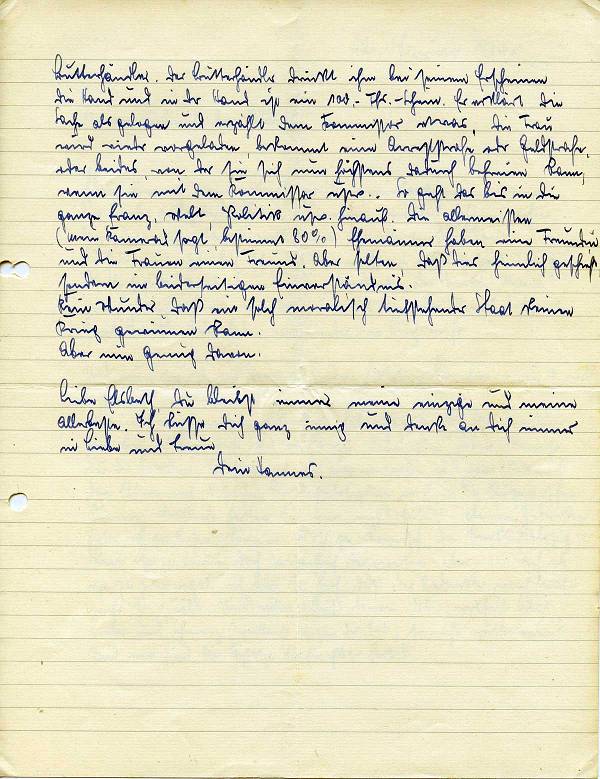 Butterhändler. Der Butterhändler drückt ihm bei seinem Erscheinen
die Hand und in der Hand ist ein 100.- Frs.-Schein. Er erklärt die
Sache als gelogen und erzählt dem Kommissar etwas. Die Frau
wird wieder vorgeladen, bekommt eine Arreststrafe oder Geldstrafe,
oder beides, von der sie sich nun höchstens dadurch befreien kann,
wenn sie mit dem Kommissar usw.. So geht das bis in die
ganze Franz. Welt, Politik usw. hinauf. Die allermeisten
(mein Kamerad sagt, bestimmt 80%) Ehemänner haben eine Freundin
und die Frauen einen Freund. Aber selten, daß dies heimlich geschieht
sondern in beiderseitigem Einverständnis.
Kein Wunder, daß ein solch moralisch tiefstehender Staat keinen
Krieg gewinnen kann.
Aber nun genug davon.
Liebe Elsbeth, Du bleibst immer meine einzige und meine
Allerbeste. Ich küsse Dich ganz innig und denke an Dich immer
in Liebe und Treue
Dein Hannes.